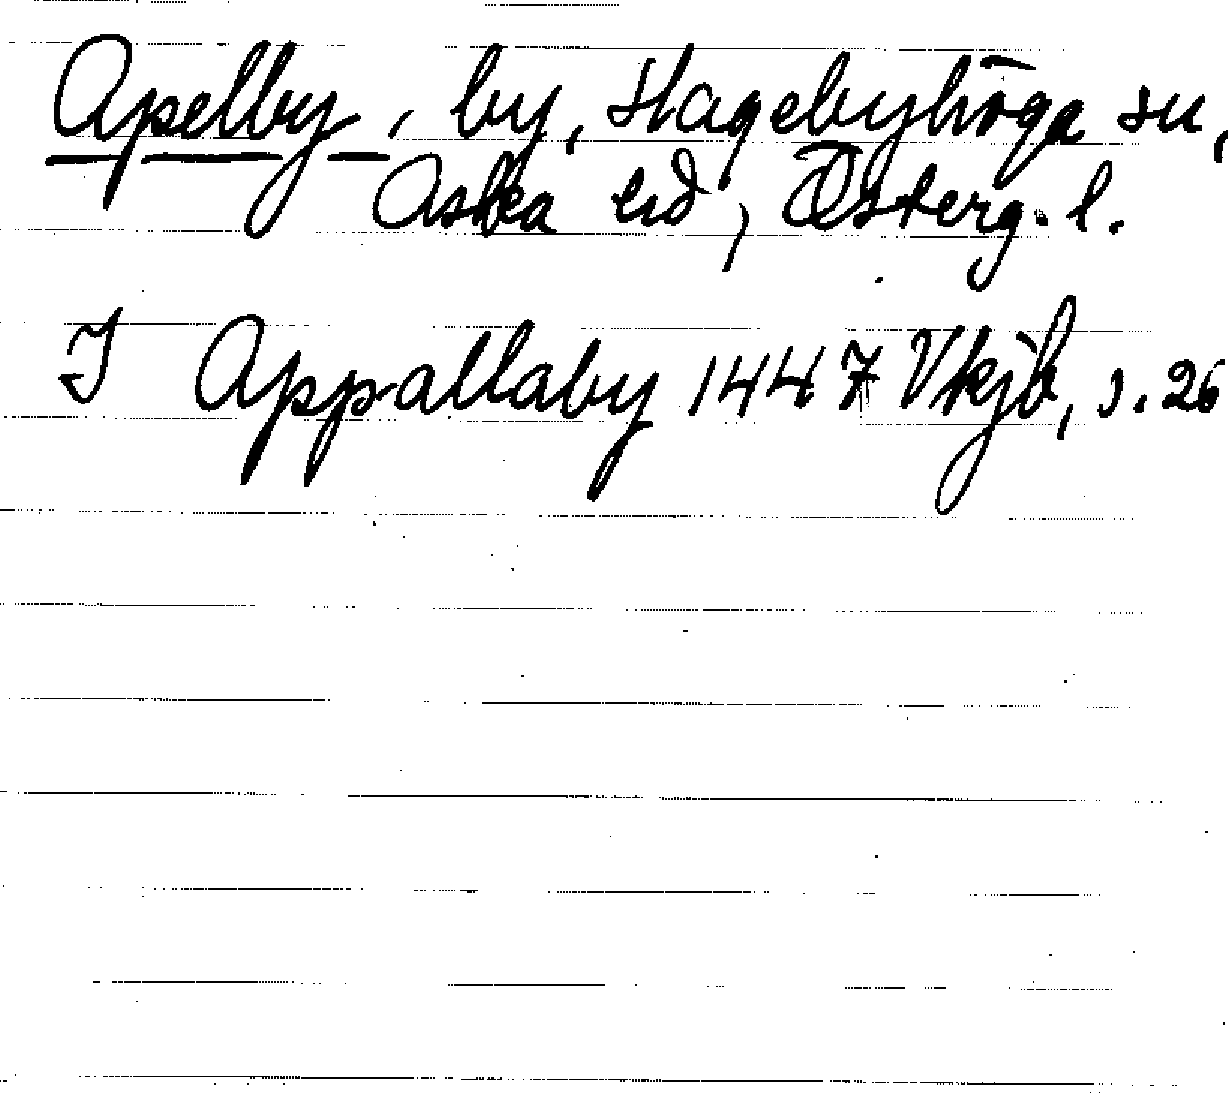 Apelby, by, Hagebyhöga sn,
Aska hd, Österg. l.
I Appallaby 1447 Vkjb, s. 26